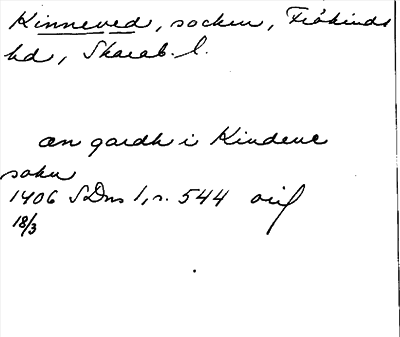 Kinneved, socken, Frökinds
hd, Skarab. l.
æn gardh i Kindene
sokn
1406 SDns 1, s. 544 orig
18/3